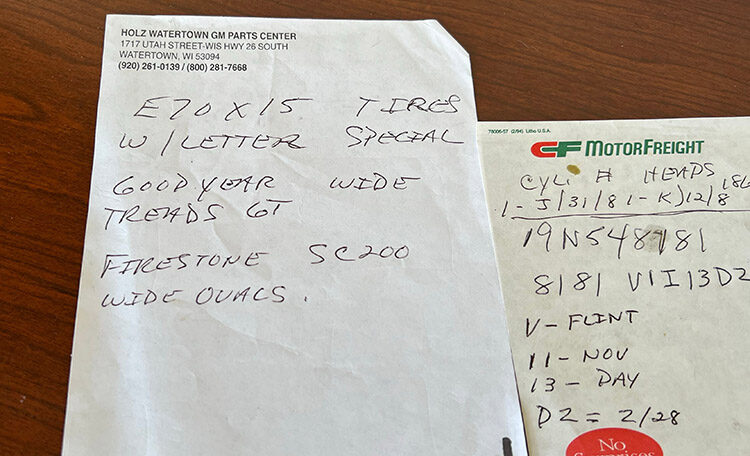 HOLZ WATERTOWN GM PARTS CENTER
1717 UTAH STREET-WIS HWY 26 SOUTH
WATERTOWN, WI 53094
(920) 261-0139 / (800) 281-7668
E70 X 15 TIRES
W/LETTER SPECIAL
GOODYEAR WIDE
TREADS GT
FIRESTONE SC200
WIDE OVALS.
78006-57 (2/94) Litho U.S.A.
CF MOTORFREIGHT
CYLI # HEADS
1-J/31/8 1-K)12/8
19N548181
8181 V1113DZ
V-FLINT
11-NOV
13-DAY
DZ = Z/28
No